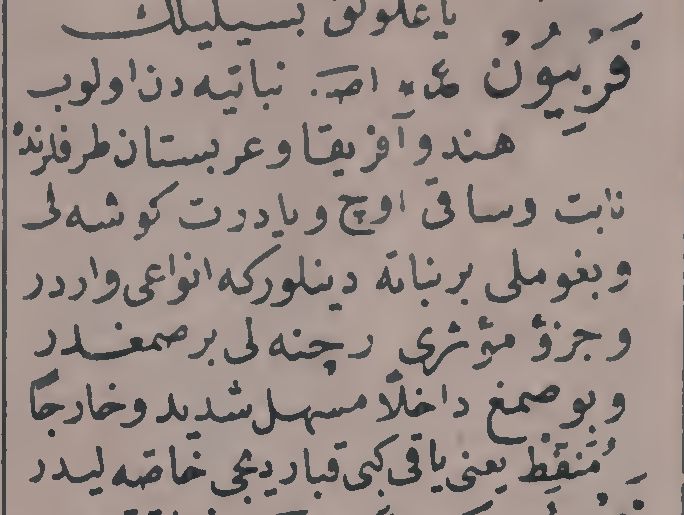 یاغلولق بسیلیلك
فَرْبیُونْ عد* اصـ. نباتیه دن اولوب
هند و آفریقا و عربستان طرفلرنده
نابت وساقی اوچ ویا درت کوشه لی
وبغوملی بر نباته دینلور که انواعی واردر
وجزؤ مؤثری رچنه لی بر صمغدر
وبو صمغ داخلاً مسهل شدید وخارجاً
مُنَفِّط یعنی یاقی کبی قباردیجی خاصه لیدر